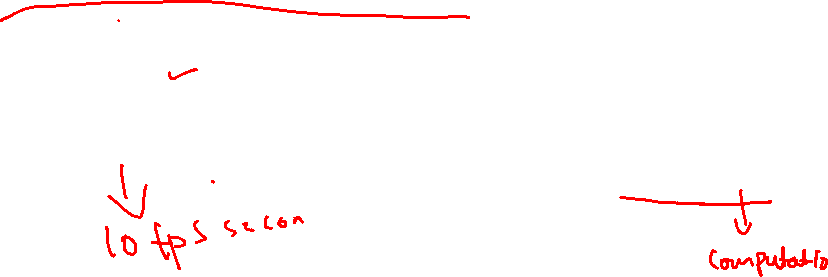 10 fps secon
computatio